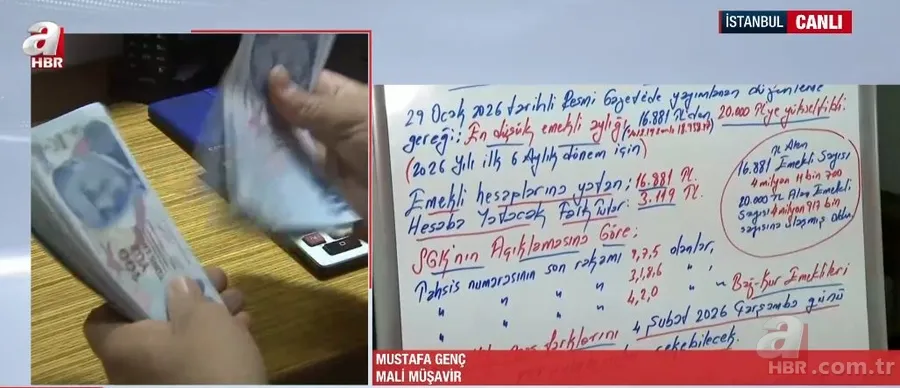 a
HBR
İSTANBUL CANLI
29 Ocak 2026 tarihli Resmi Gazetede yayımlanan düzenleme
gereği: En düşük emekli aylığı 16.881 TL'den 20.000 TL'ye yükseltildi.
(2026 Yılı ilk 6 Aylık dönem için)
Emekli hesaplarına yatan: 16.881 TL.
Hesaba Yatacak Fark Tutar: 3.119 TL.
TL Alan
16.881 Emekli Sayısı
4 milyon 11 bin 700
20.000 TL Alan Emekli
Sayısı 4 milyon 917 bin
sayısına ulaşmış oldu.
SGK'nın Açıklamasına Göre:
Tahsis numarasının son rakamı 9,7,5 olanlar,
" " " " 3,1,8,6 " "
" " " " 4,2,0 " " Bağ-Kur Emeklileri
farklarını 4 Şubat 2026 Çarşamba günü
çekebilecek.
MUSTAFA GENÇ
MALİ MÜŞAVİR
a
HBR.com.tr